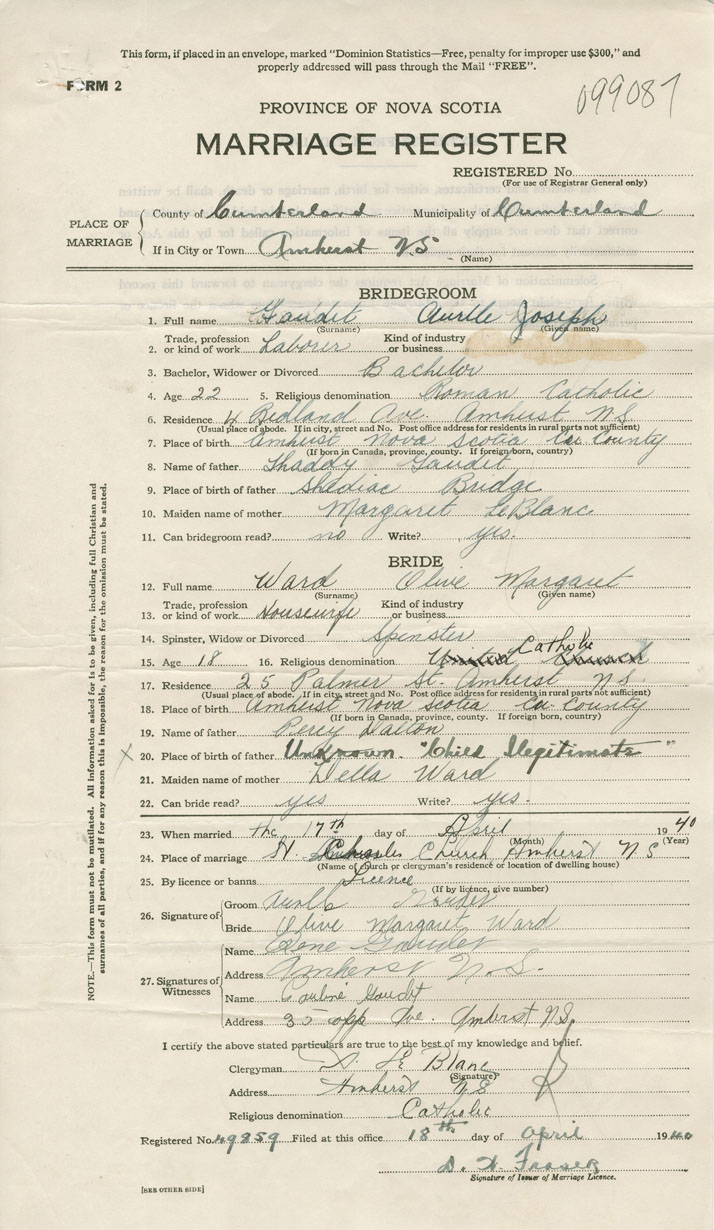 This form, if placed in an envelope, marked "Dominion Statistics—Free, penalty for improper use $300," and
properly addressed will pass through the Mail "FREE".
FORM 2
099087
PROVINCE OF NOVA SCOTIA
MARRIAGE REGISTER
REGISTERED No.
(For use of Registrar General only)
PLACE OF MARRIAGE
County of Cumberland Municipality of Cumberland
If in City or Town Amherst N.S.
(Name)
BRIDEGROOM
1. Full name Gaudet Aurele Joseph
(Surname) (Given name)
2. Trade, profession or kind of work Laborer Kind of industry or business
3. Bachelor, Widower or Divorced Bachelor
4. Age 22 5. Religious denomination Roman Catholic
6. Residence 4 Ave. Amherst N.S.
(Usual place of abode. If in city, street and No. Post office address for residents in rural parts not sufficient)
7. Place of birth Amherst Nova Scotia Cu. County
(If born in Canada, province, county. If foreign born, country)
8. Name of father Thaddy Gaudet
9. Place of birth of father Shediac Bridge
10. Maiden name of mother Margaret LeBlanc
11. Can bridegroom read? no Write? yes.
BRIDE
12. Full name Ward Olive Margaret
(Surname) (Given name)
13. Trade, profession or kind of work Housewife Kind of industry or business
14. Spinster, Widow or Divorced Spinster
15. Age 18 16. Religious denomination United Church Catholic
17. Residence 25 Palmer St. Amherst N.S.
(Usual place of abode. If in city, street and No. Post office address for residents in rural parts not sufficient)
18. Place of birth Amherst Nova Scotia Cu. County
(If born in Canada, province, county. If foreign born, country)
19. Name of father Percy Dalton
X 20. Place of birth of father Unknown. "Child Illegitimate"
21. Maiden name of mother Della Ward
22. Can bride read? yes Write? yes.
23. When married the 17th day of April 1940
(Month) (Year)
24. Place of marriage St. Charles Church Amherst N S
(Name of church or clergyman's residence or location of dwelling house)
25. By licence or banns Licence
(If by licence, give number)
26. Signature of
Groom Gaudet
Bride Olive Margaret Ward
27. Signatures of Witnesses
Name Gaudet
Address Amherst N.S.
Name Gaudet
Address 35 Ave. Amherst N.S.
I certify the above stated particulars are true to the best of my knowledge and belief.
Clergyman Le Blanc
(Signature)
Address Amherst N.S.
Religious denomination Catholic
Registered No. 49859 Filed at this office 18th day of April 1940
D. W. Fraser
Signature of Issuer of Marriage Licence.
[SEE OTHER SIDE]
NOTE.—This form must not be mutilated. All information asked for is to be given, including full Christian and
surnames of all parties, and if for any reason this is impossible, the reason for the omission must be stated.